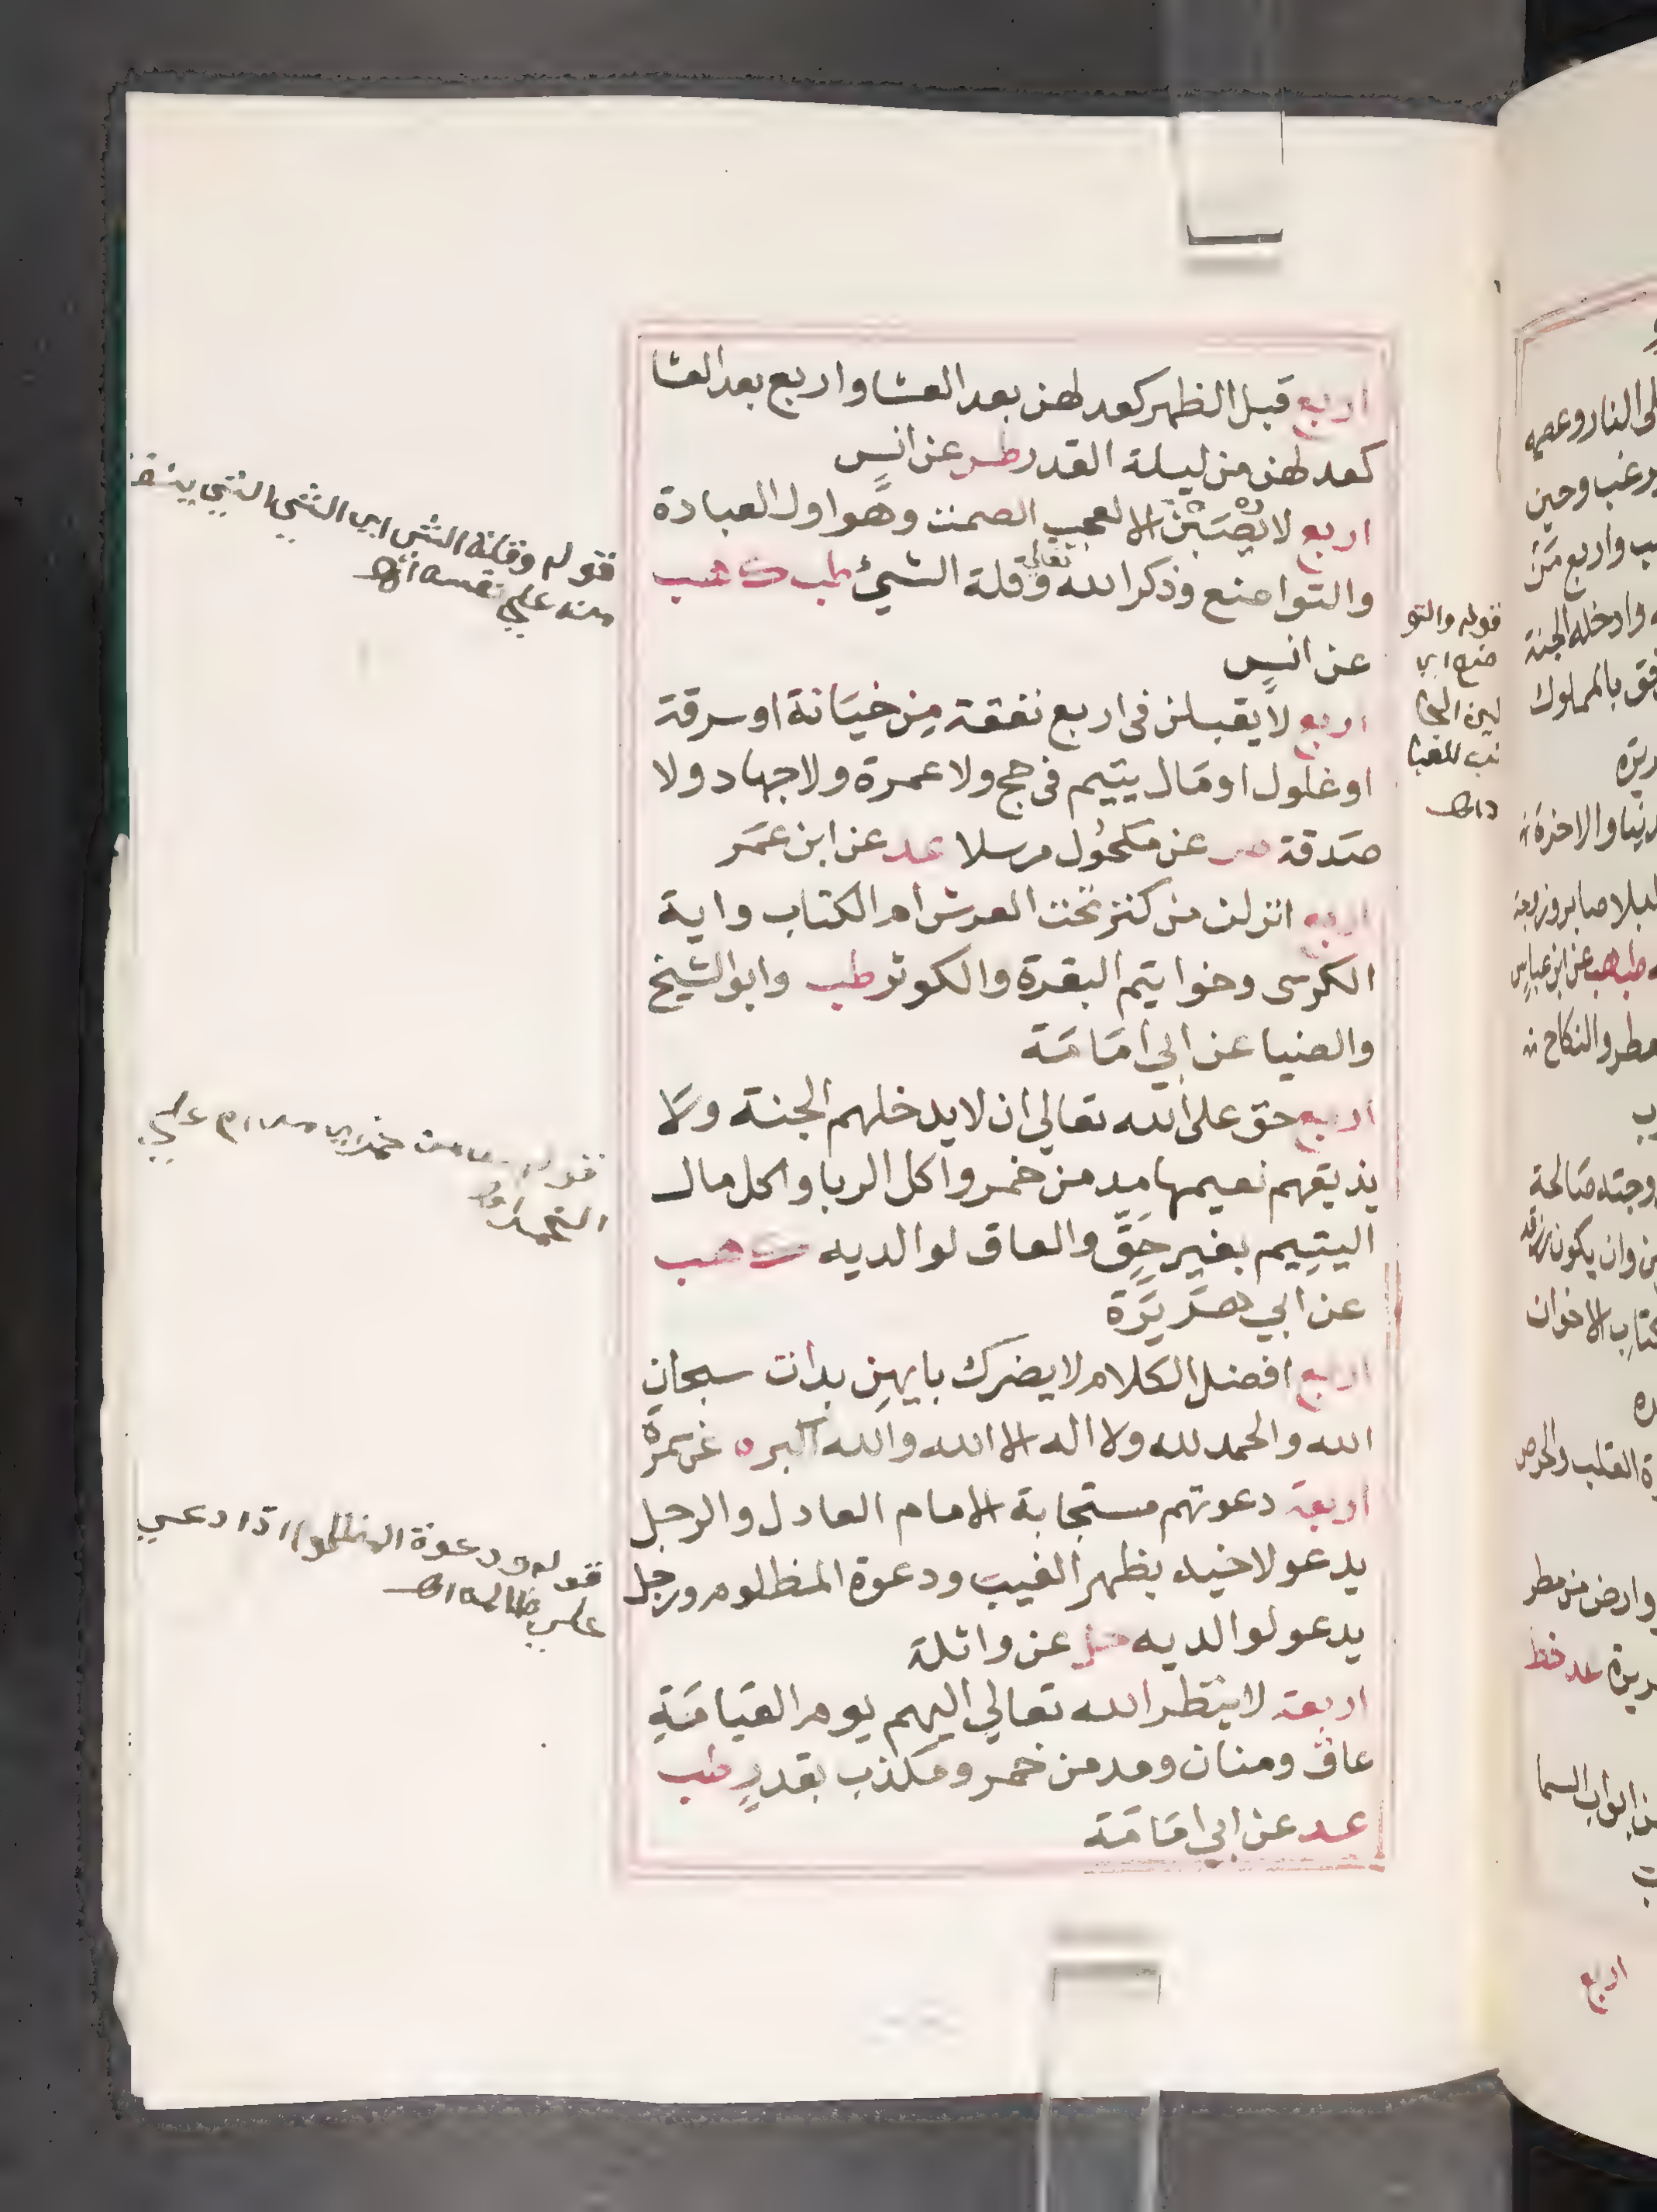 اربع قبل الظهر كعدلهن بعد العشا واربع بعد العشا
كعدلهن من ليلة القدر طس عن انس
اربع لا يصبن الا لعجب الصمت وهو اول العبادة
والتواضع وذكر الله تعالي وقلة الشيئ طب ك هب
عن انس
اربع لا يقبلن في اربع نفقة من خيانة او سرقة
او غلول او مال يتيم في حج ولا عمرة ولا جهاد ولا
صدقة ص عن مكحول مرسلا عد عن ابن عمر
اربع انزلن من كنز تحت العرش ام الكتاب واية
الكرسى وخواتيم البقرة والكوثر طب وابو الشيخ
والضيا عن ابي امامة
اربع حق على الله تعالي ان لا يدخلهم الجنة ولا
يذيقهم نعيمها مدمن خمر واكل الربا واكل مال
اليتيم بغير حق والعاق لوالديه ك هب
عن ابي هريرة
اربع افضل الكلام لا يضرك بايهن بدات سبحان
الله والحمد لله ولا اله الا الله والله اكبر ه عن سمرة
اربعة دعوتهم مستجابة الامام العادل والرجل
يدعو لاخيه بظهر الغيب ودعوة المظلوم ورجل
يدعو لوالديه حل عن واثلة
اربعة لا ينظر الله تعالي اليهم يوم القيامة
عاق ومنان ومدمن خمر ومكذب بقدر طب
عد عن ابي امامة
قوله وقلة الشي اي الشي الذي ينفق
منه علي نفسه اھ
قوله والتو
ضع اي
لين الجا
نب للعبا
د اھ
قوله مدمن خمر اي مداوم علي
قوله ودعوة المظلوم اذا دعي
علي ظالمه اھ
اربع